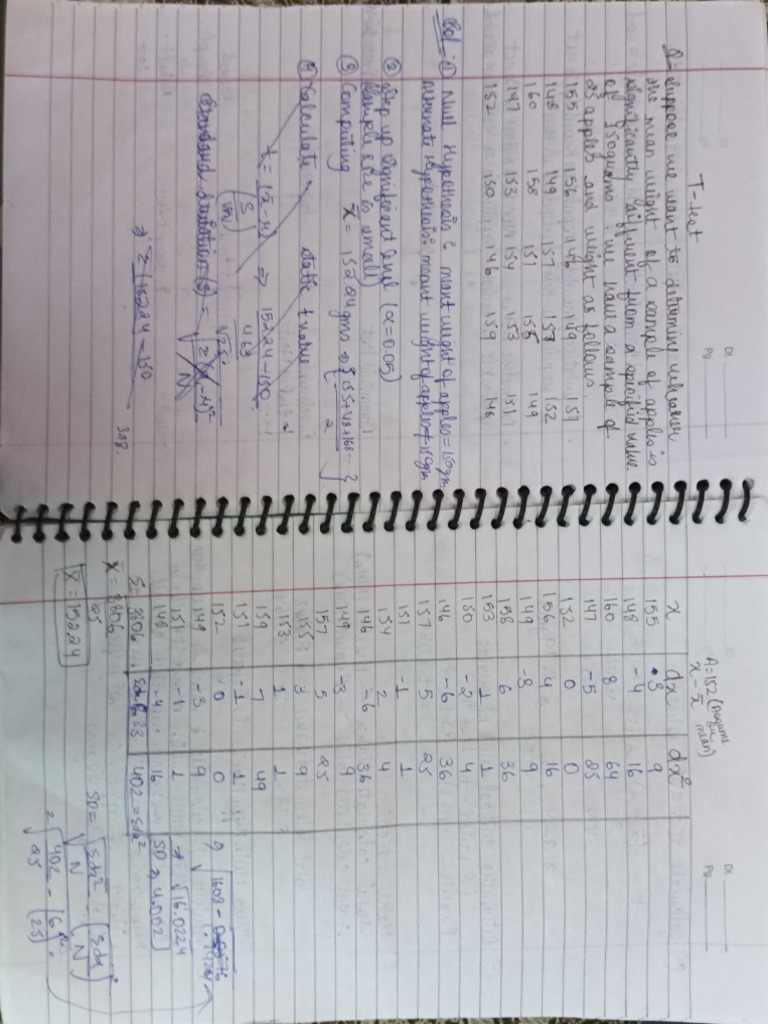 Dt
Pg
T-test
Q= Suppose we want to determine whether
the mean weight of a sample of apples is
significantly different from a specified value
of 150grams. we have a sample of
25 apples and weight as follows.
155 156 146 149 151
148 149 157 157 152
160 158 151 155 149
147 153 154 153 151
152 150 146 159 148
Sol=: ① Null Hypothesis meant weight of apples = 150gm
Alternate Hypothesis: meant weight of apples ≠ 150gm
② Step up significant level (α=0.05)
(sample size is small)
③ Computing x̄ = 152.24 gms
④ Calculate static t value
t = |x̄ - μ| ⇒ 152.24 - 150
(S/√N)
Standard deviation (S) =
N
152.24 - 150
Dt
Pg
A=152 (Assume mean)
x - x̄
x dx dx²
155 3 9
148 -4 16
160 8 64
147 -5 25
152 0 0
156 4 16
149 -3 9
158 6 36
153 1 1
150 -2 4
146 -6 36
157 5 25
151 -1 1
154 2 4
146 -6 36
149 -3 9
157 5 25
155 3 9
153 1 1
159 7 49
151 -1 1
152 0 0
149 -3 9
151 -1 1
148 -4 16
Σ= 3806 402 = Σdx²
x̄ = 3806
25
x̄ = 152.24
SD = √Σdx²/N - (Σdx/N)²
= √402/25 - (6/25)²
⇒ √16.0224
SD ⇒ 4.002